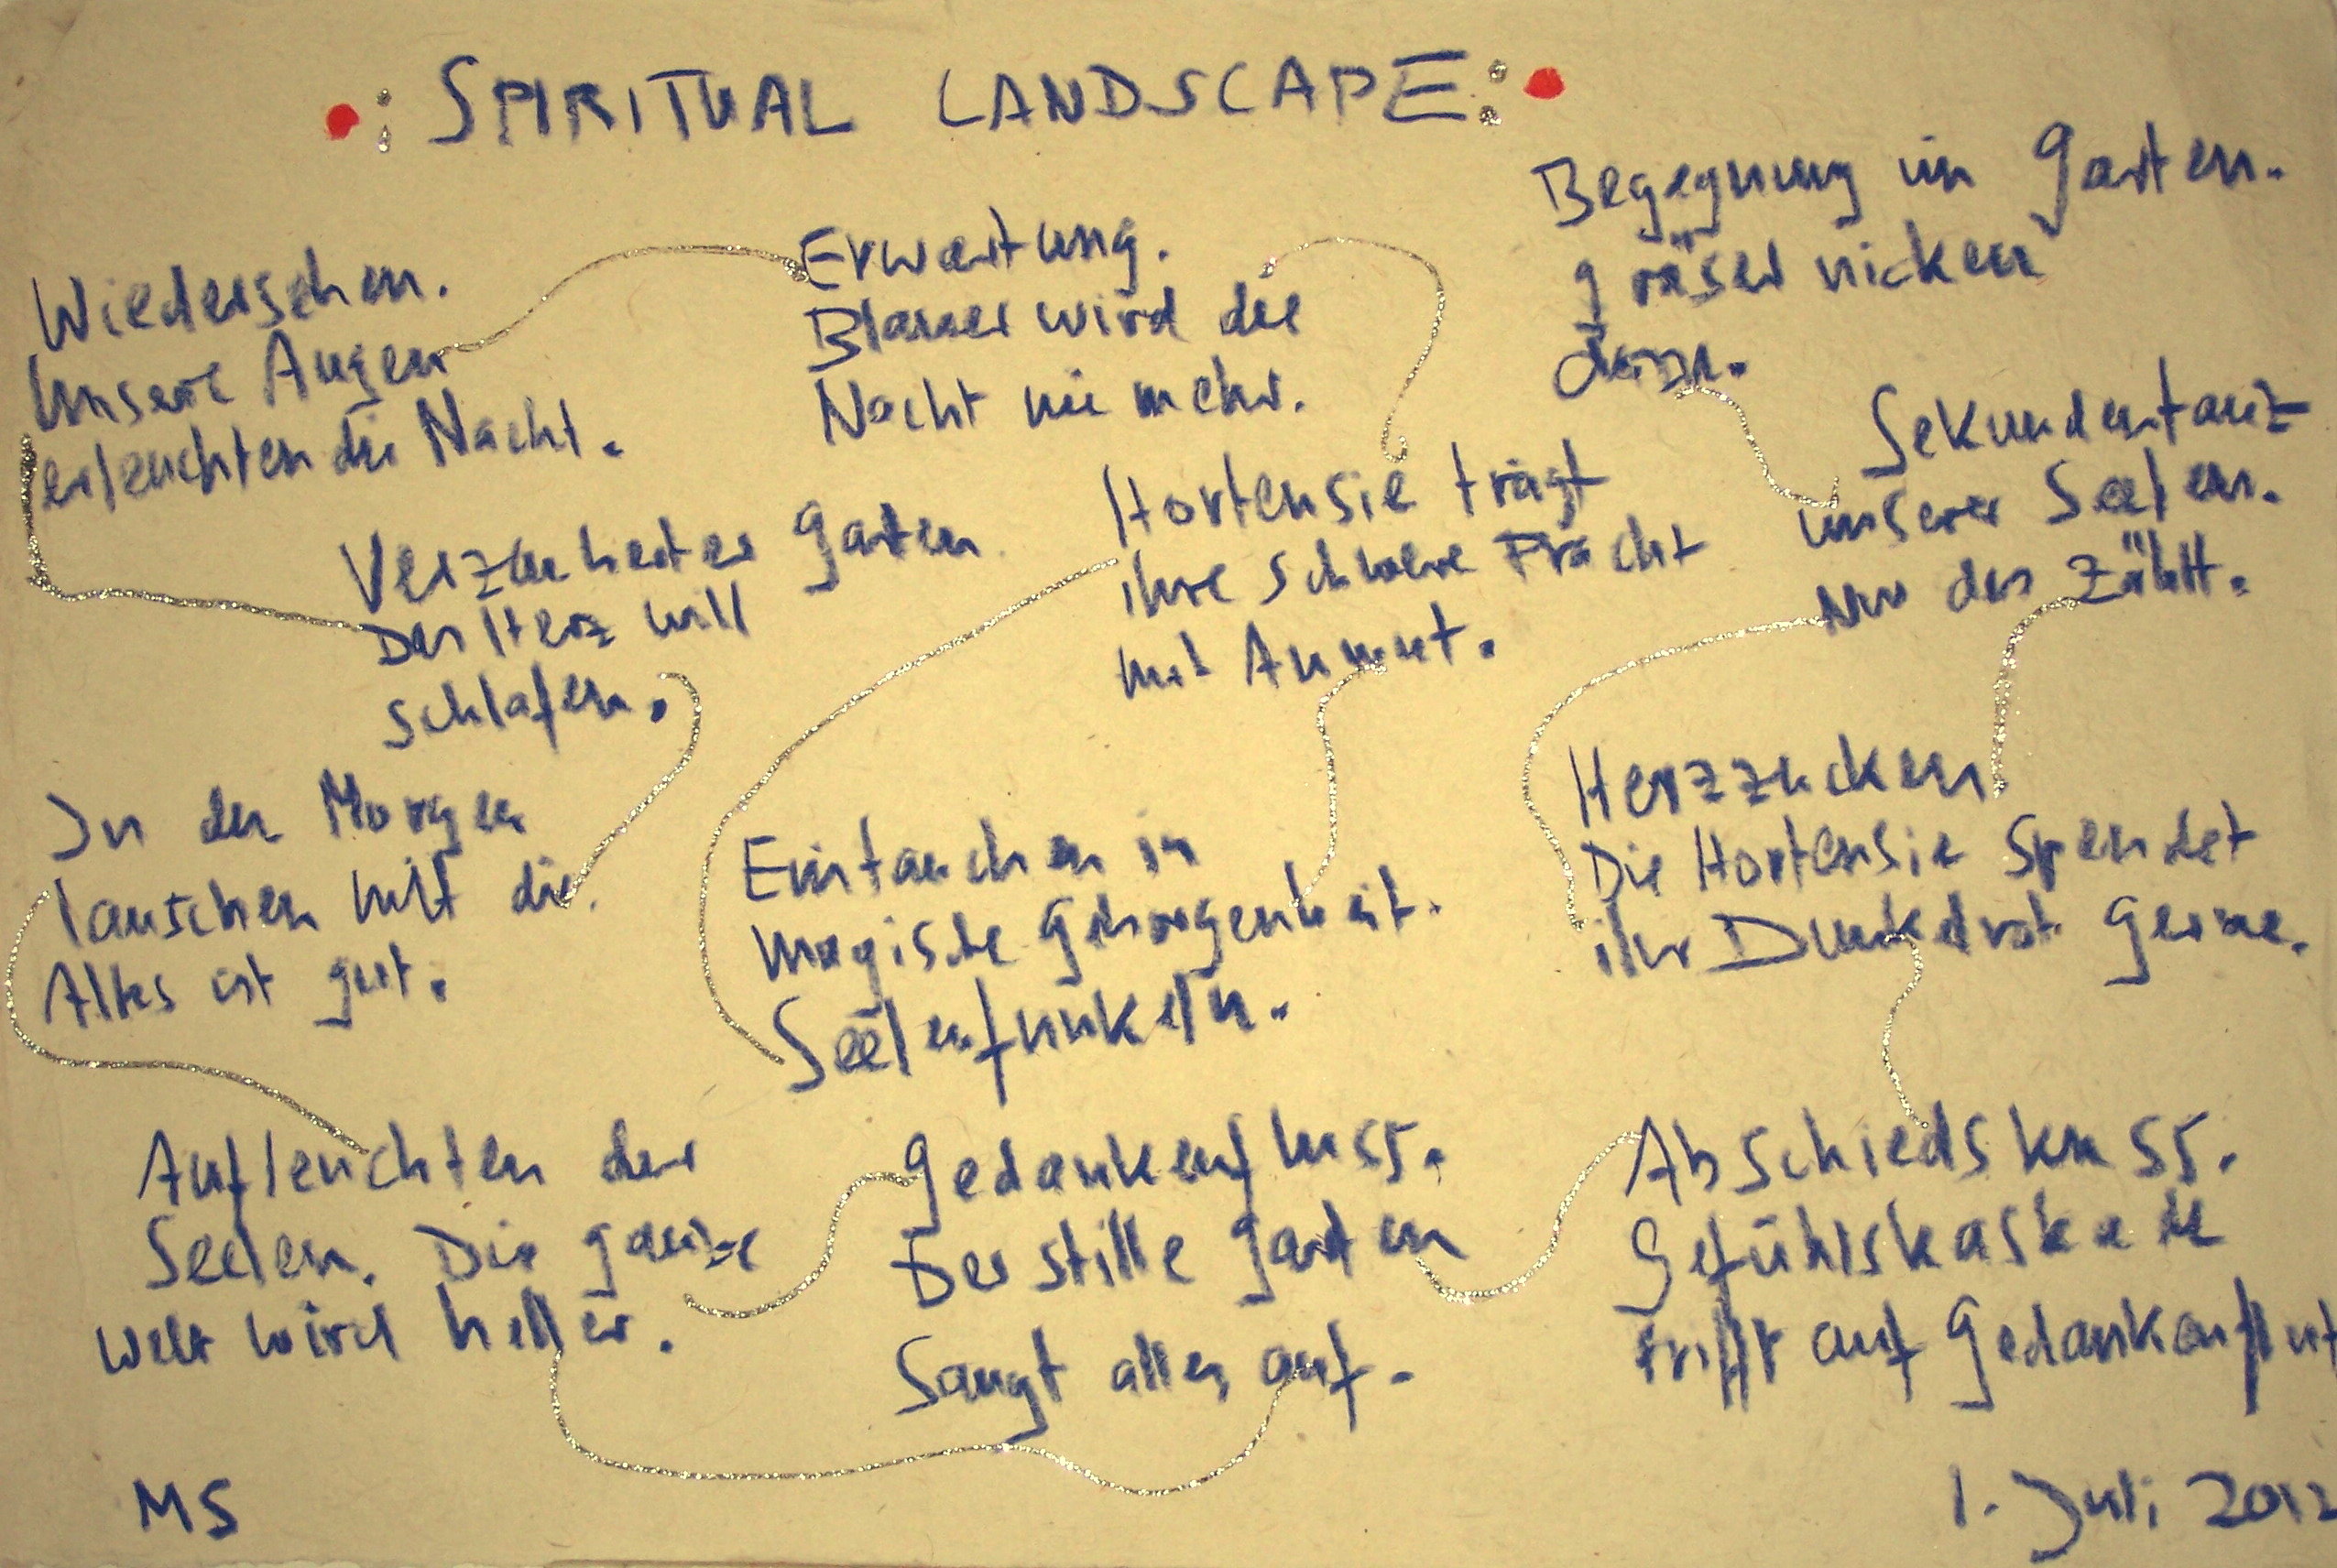 : SPIRITUAL LANDSCAPE :
Wiedersehen.
Unsere Augen
erleuchten die Nacht.
Erwartung.
Blauer wird die
Nacht nie mehr.
Begegnung im Garten.
Gräser nicken
dazu.
Verzauberter Garten
Das Herz will
schlafen.
Hortensie trägt
ihre schwere Pracht
mit Anmut.
Sekundentanz
unserer Seelen.
Nur das zählt.
In den Morgen
lauschen mit dir.
Alles ist gut.
Eintauchen in
magische Geborgenheit.
Seelenfunkeln.
Herzzucken
Die Hortensie spendet
ihr Dunkelrot gerne.
Aufleuchten der
Seelen. Die ganze
Welt wird heller.
Gedankenfluss.
Der stille Garten
Saugt alles auf.
Abschiedskuss.
Gefühlskaskade
trifft auf Gedankenflut
MS
1. Juli 2012